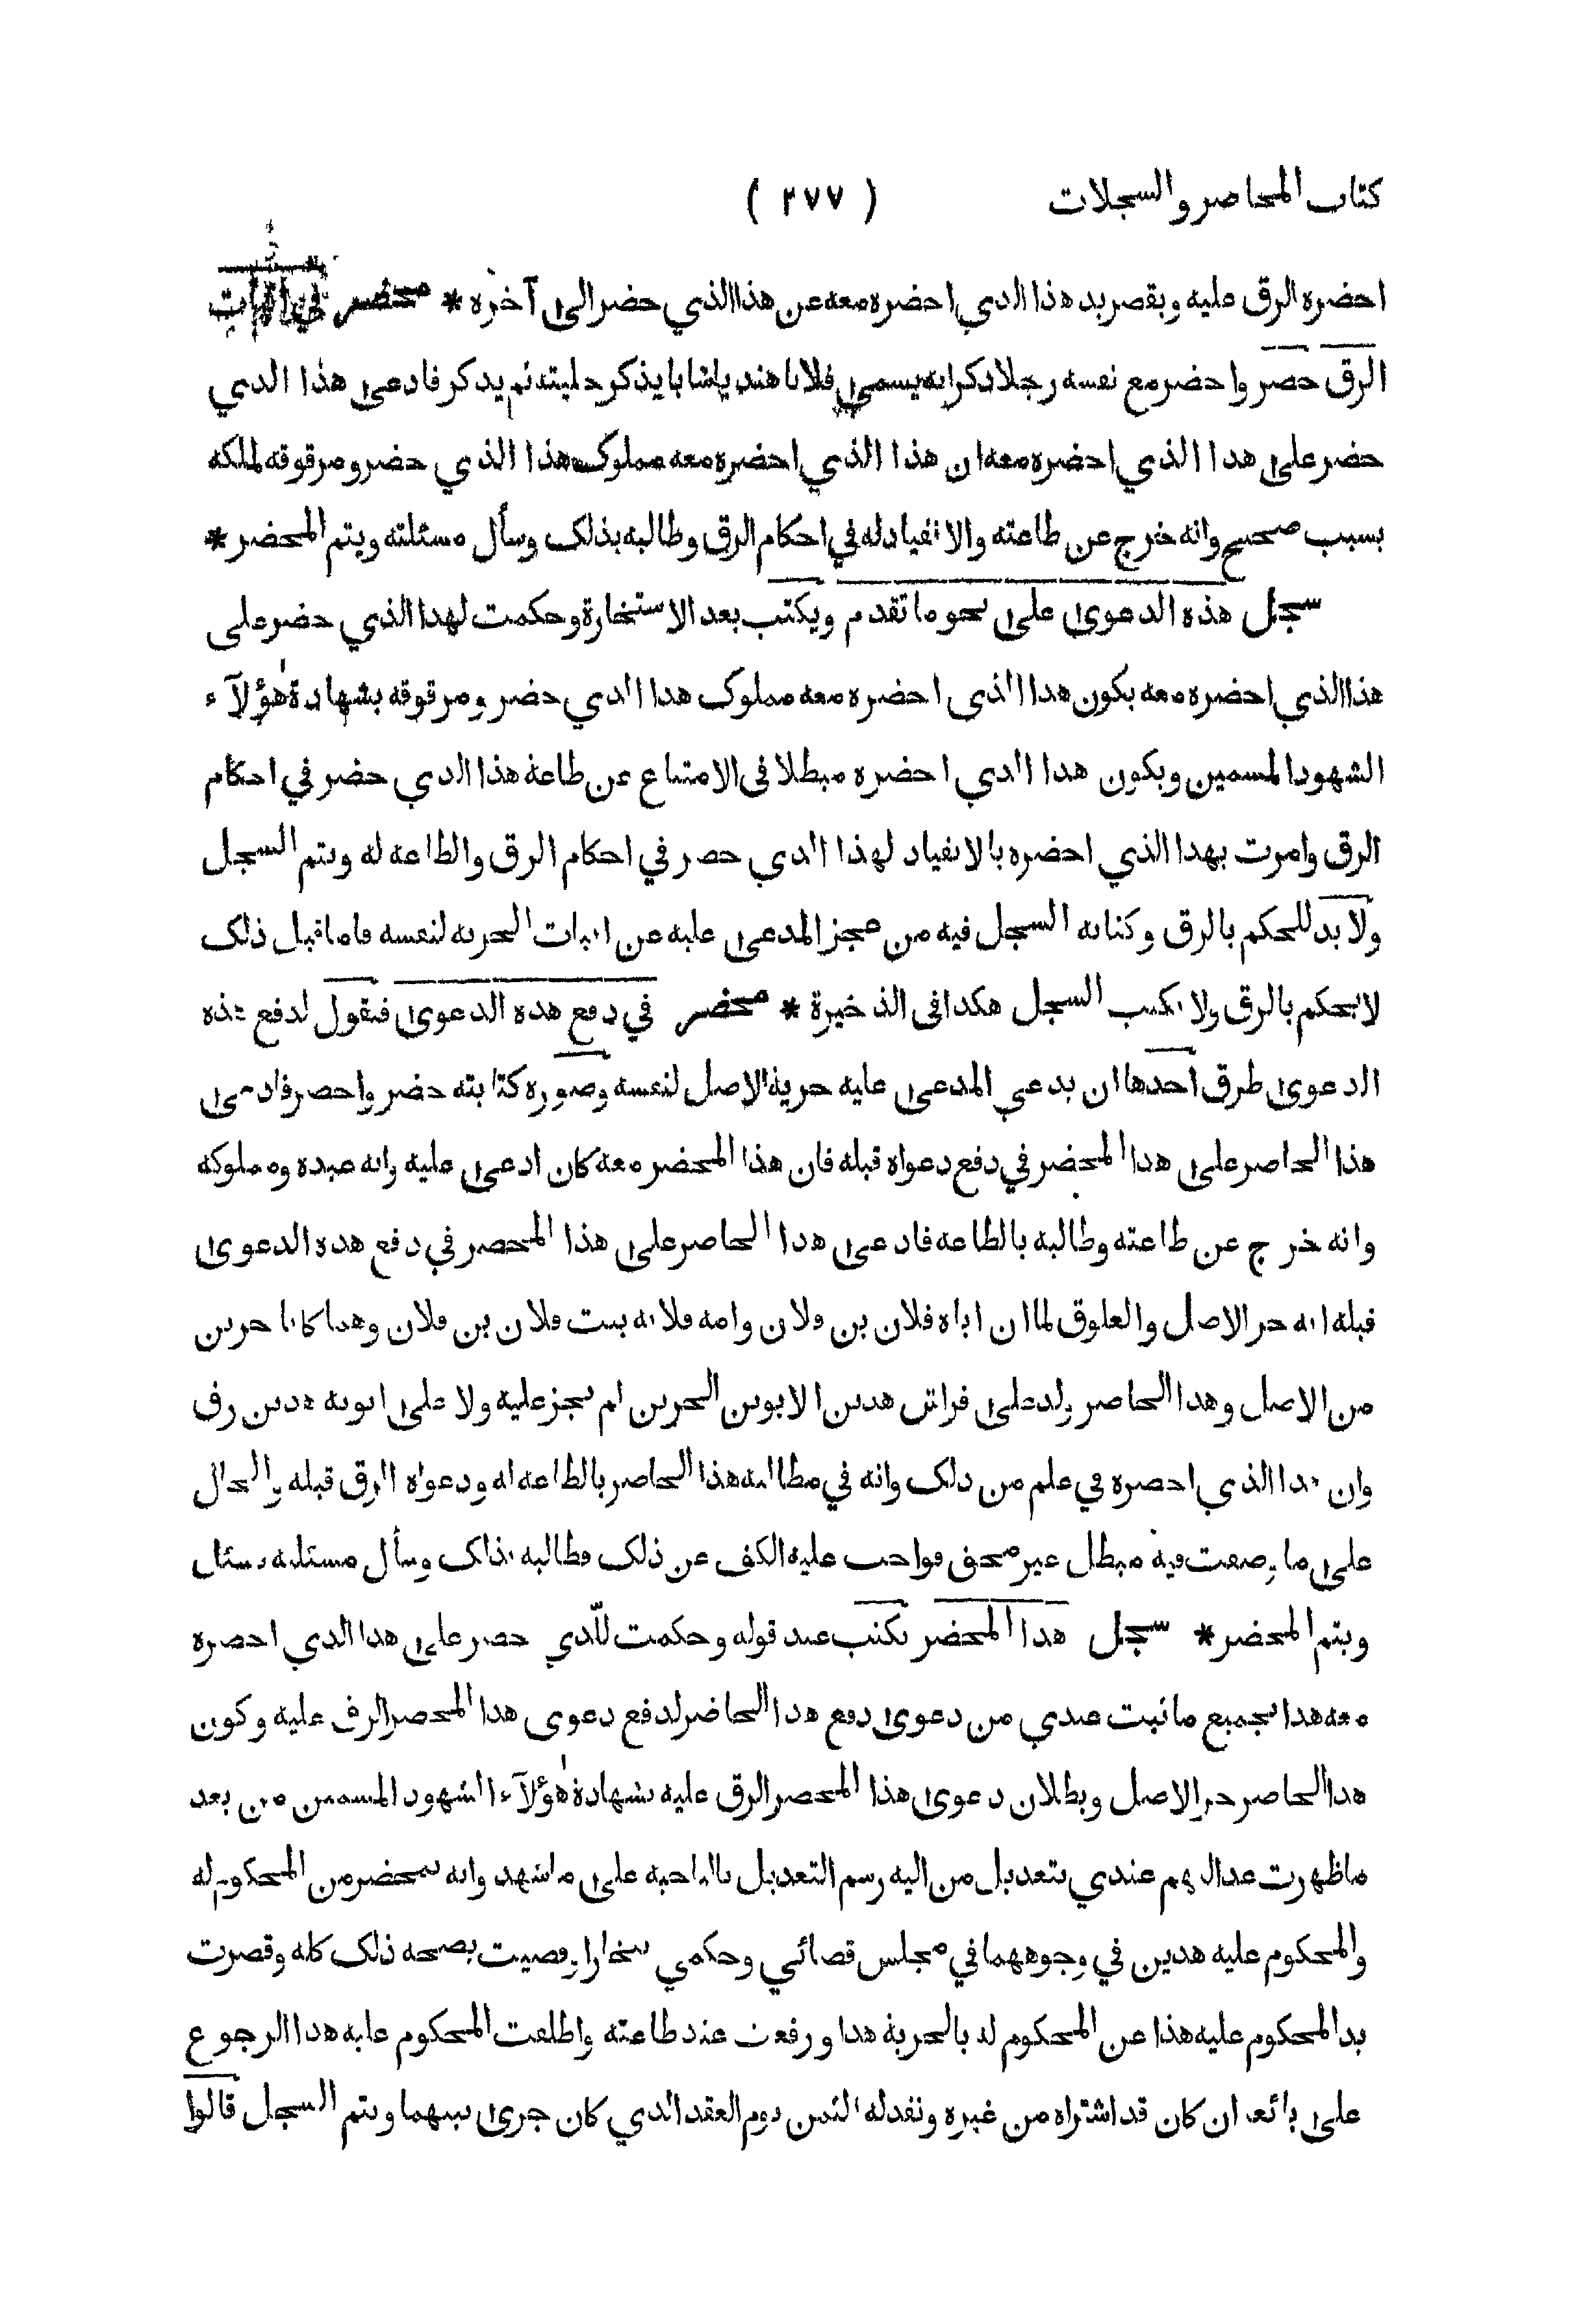 كتاب المحاضر والسجلات ( ٢٧٧ )
احضره الرق عليه وبقصر يد هذا الذي احضره معه عن هذا الذي حضر الى آخره * محضر في اثبات
الرق حضر واحضر مع نفسه رجلا ذكر انه يسمى فلانا هنديا شابا يذكر حليته ثم يذكر فادعى هذا الذي
حضر على هذا الذي احضره معه ان هذا الذي احضره معه مملوك هذا الذي حضر ومرقوقه لملكه
بسبب صحيح وانه خرج عن طاعته والانقياد له في احكام الرق وطالبه بذلك وسأل مسئلته ويتم المحضر *
سجل هذه الدعوى على نحو ما تقدم ويكتب بعد الاستخارة وحكمت لهذا الذي حضر على
هذا الذي احضره معه بكون هذا الذي احضره معه مملوك هذا الذي حضر ومرقوقه بشهادة هٰؤلآء
الشهود المسمين وبكون هذا الذي احضره مبطلا فى الامتناع عن طاعة هذا الذي حضر في احكام
الرق وامرت بهذا الذي احضره بالانقياد لهذا الذي حضر في احكام الرق والطاعه له ويتم السجل
ولا بد للحكم بالرق وكتابه السجل فيه من عجز المدعى عليه عن اثبات الحريه لنفسه فاما قبل ذلك
لا يحكم بالرق ولا يكتب السجل هكذا فى الذخيرة * محضر في دفع هذه الدعوى فنقول لدفع هذه
الدعوى طرق احدها ان يدعي المدعى عليه حرية الاصل لنفسه وصوره كتابته حضر واحضر فادعى
هذا الحاضر على هذا المحضر في دفع دعواه قبله فان هذا المحضر معه كان ادعى عليه وانه عبده ومملوكه
وانه خرج عن طاعته وطالبه بالطاعه فادعى هذا الحاضر على هذا المحضر في دفع هذه الدعوى
قبله انه حر الاصل والعلوق لما ان اباه فلان بن فلان وامه فلانه بنت فلان بن فلان وهما كانا حرين
من الاصل وهذا الحاضر ولد على فراش هذين الابوين الحرين لم يجز عليه ولا على ابويه هذين رق
وان هذا الذي احضره في علم من ذلك وانه في مطالبه هذا الحاضر بالطاعه له ودعواه الرق قبله والحال
على ما وصفت فيه مبطل غير محق فواجب عليه الكف عن ذلك فطالبه بذلك وسأل مسئلته فسئل
ويتم المحضر * سجل هذا المحضر يكتب عند قوله وحكمت للّذي حضر على هذا الذي احضره
معه هذا بجميع ما ثبت عندي من دعوى دفع هذا الحاضر لدفع دعوى هذا المحضر الرق عليه وكون
هذا الحاضر حر الاصل وبطلان دعوى هذا المحضر الرق عليه بشهادة هٰؤلآء الشهود المسمين من بعد
ما ظهرت عدالتهم عندي بتعديل من اليه رسم التعديل بالناحيه على ما شهد وانه بمحضر من المحكوم له
والمحكوم عليه هذين في وجوههما في مجلس قضائي وحكمي ببخارا وقضيت بصحه ذلك كله وقصرت
يد المحكوم عليه هذا عن المحكوم له بالحرية هذا ورفعت عنه طاعته واطلقت المحكوم عليه هذا الرجوع
على بائعه ان كان قد اشتراه من غيره ونقد له الثمن يوم العقد الذي كان جرى بينهما ويتم السجل قالوا